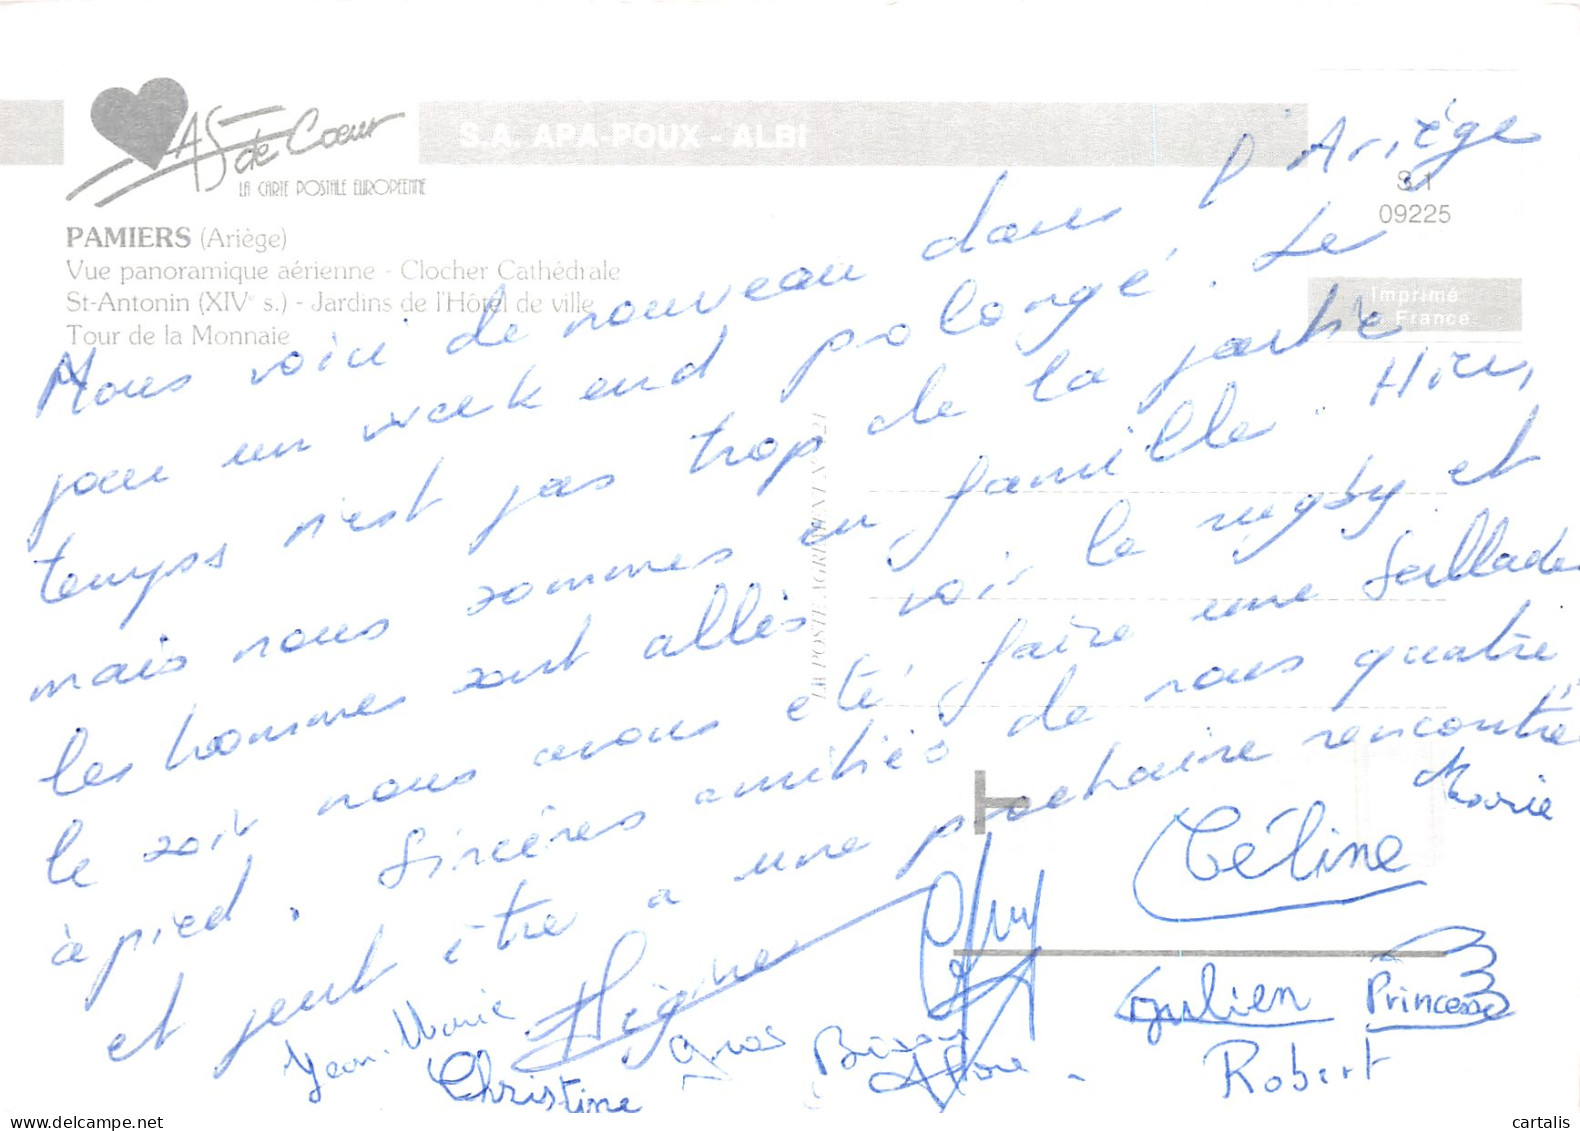 As de Coeur
LA CARTE POSTALE EUROPEENNE
S.A. APA-POUX - ALBI
S.1
09225
PAMIERS (Ariège)
Vue panoramique aérienne - Clocher Cathédrale
St-Antonin (XIVe s.) - Jardins de l'Hôtel de ville
Tour de la Monnaie
Imprimé
France
LA POSTE AGREMENT N°
Nous voici de nouveau dans l'Ariège
pour un week end prolongé. Le
temps n'est pas trop de la partie
mais nous sommes en famille. Hier,
les hommes sont allés voir le rugby et
le soir nous avons été faire une ballade
à pied. Sincères amitiés de nous quatre
et peut être a une prochaine rencontre
Marie
Céline
Julien
Princesse
Jean-Marie
Christine
Gros Bisous
Robert
cartalis